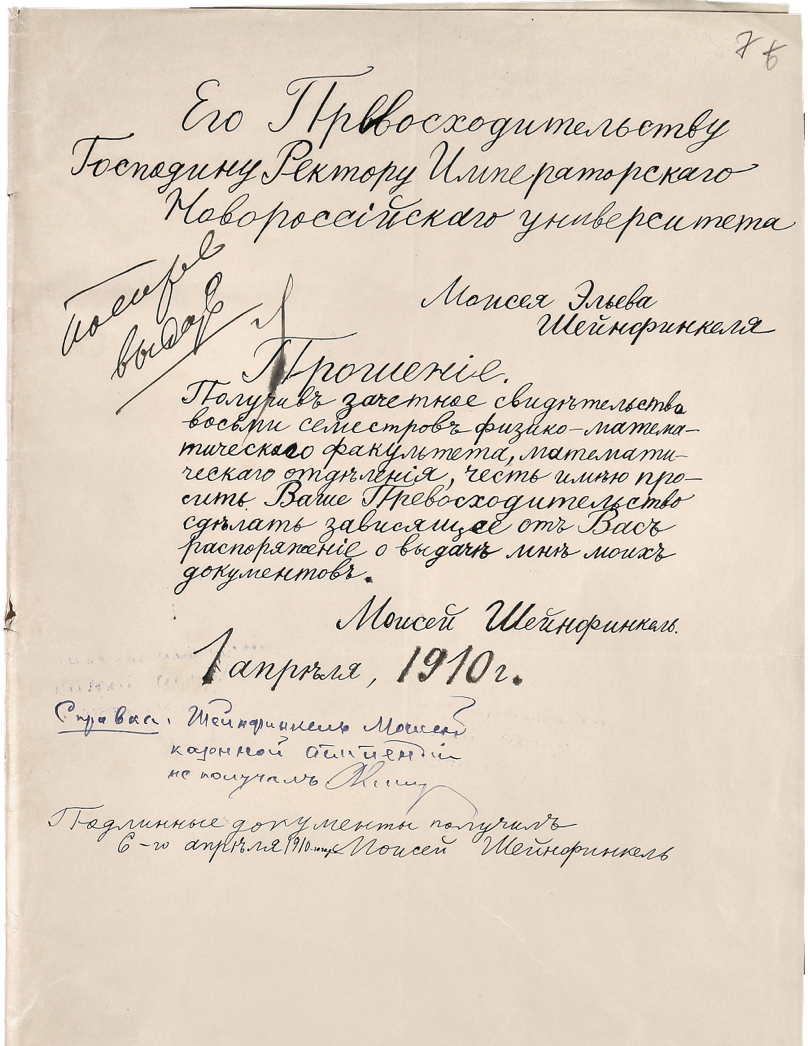 Его Превосходительству
Господину Ректору Императорскаго
Новороссійскаго университета
Моисея Эльева
Шейнфинкеля
выдать
Прошеніе.
Получивъ зачетное свидѣтельство
восьми семестровъ физико-матема-
тическаго факультета, математи-
ческаго отдѣленія, честь имѣю про-
сить Ваше Превосходительство
сдѣлать зависящее отъ Васъ
распоряженіе о выдачѣ мнѣ моихъ
документовъ.
Моисей Шейнфинкель.
1 апрѣля, 1910 г.
Справка. Шейнфинкель Моисей
казенной стипендіи
не получалъ
Подлинные документы получилъ
6-го апрѣля 1910 Моисей Шейнфинкель